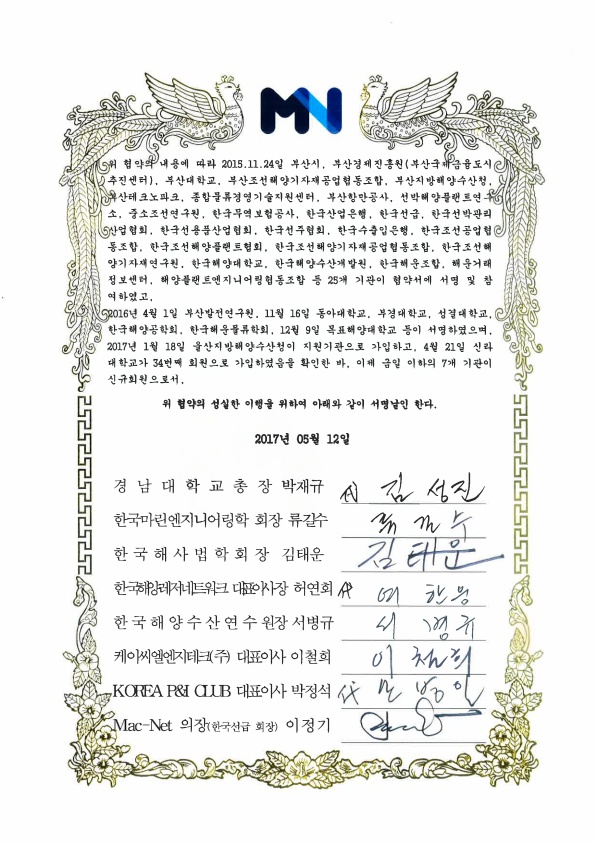 MN
위 협약의 내용에 따라 2015.11.24일 부산시, 부산경제진흥원(부산국제금융도시
추진센터), 부산대학교, 부산조선해양기자재공업협동조합, 부산지방해양수산청,
부산테크노파크, 종합물류경영기술지원센터, 부산항만공사, 선박해양플랜트연구
소, 중소조선연구원, 한국무역보험공사, 한국산업은행, 한국선급, 한국선박관리
산업협회, 한국선용품산업협회, 한국선주협회, 한국수출입은행, 한국조선공업협
동조합, 한국조선해양플랜트협회, 한국조선해양기자재공업협동조합, 한국조선해
양기자재연구원, 한국해양대학교, 한국해양수산개발원, 한국해운조합, 해운거래
정보센터, 해양플랜트엔지니어링협동조합 등 25개 기관이 협약서에 서명 및 참
여하였고,
2016년 4월 1일 부산발전연구원, 11월 16일 동아대학교, 부경대학교, 성결대학교,
한국해양공학회, 한국해운물류학회, 12월 9일 목포해양대학교 등이 서명하였으며,
2017년 1월 18일 울산지방해양수산청이 지원기관으로 가입하고, 4월 21일 신라
대학교가 34번째 회원으로 가입하였음을 확인한 바, 이제 금일 이하의 7개 기관이
신규회원으로서,
위 협약의 성실한 이행을 위하여 아래와 같이 서명날인 한다.
2017년 05월 12일
경남대학교총장 박재규 代 김성진
한국마린엔지니어링학 회장 류길수 류길수
한국해사법학회장 김태운 김태운
한국해양레저네트워크 대표이사장 허연회 代
한국해양수산연수원장 서병규 서병규
케이씨엘엔지테크(주) 대표이사 이철희 이철희
KOREA P&I CLUB 대표이사 박정석 代
Mac-Net 의장(한국선급 회장) 이정기